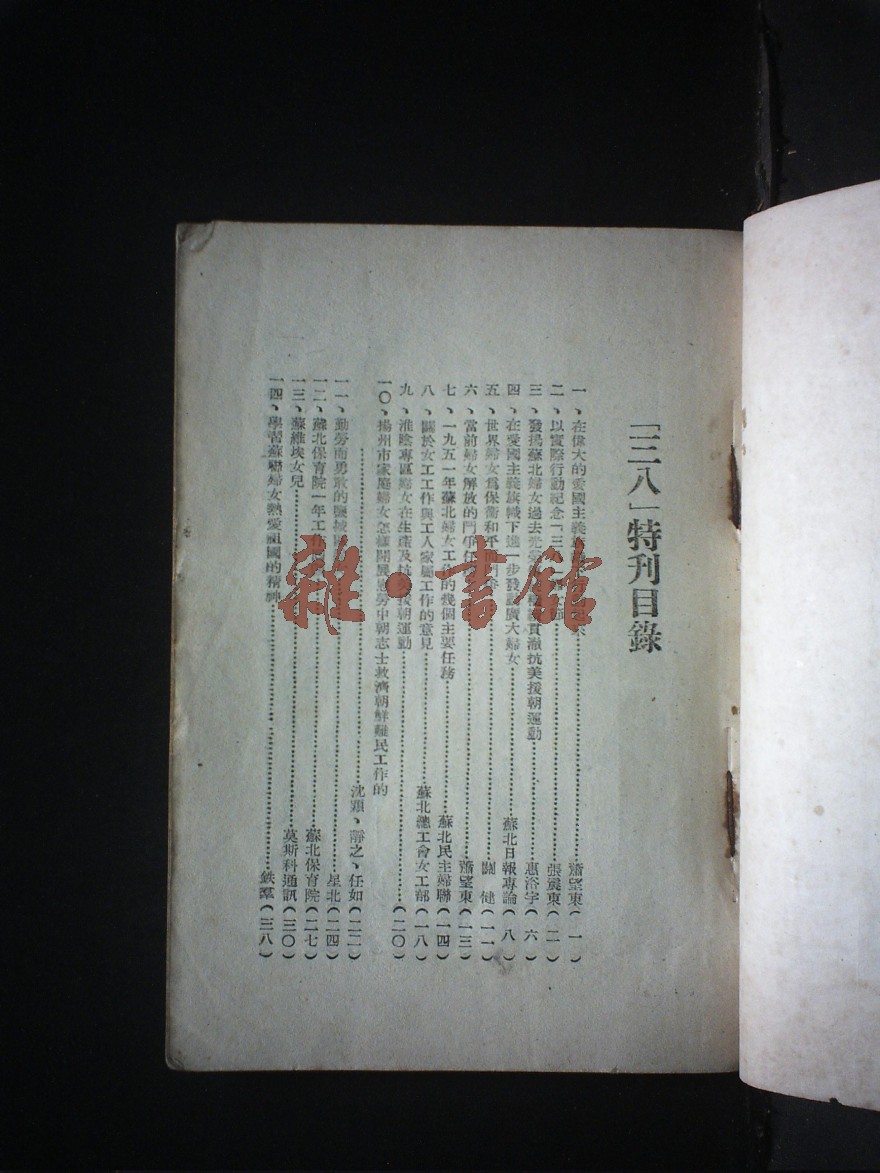 「三八」特刊目錄
一、在偉大的愛國主義……蕭望東(一)
二、以實際行動紀念「三……張震東(二)
三、發揚蘇北婦女過去光榮……貫澈抗美援朝運動……惠浴宇(六)
四、在愛國主義旗幟下進一步發動廣大婦女……蘇北日報專論(八)
五、世界婦女爲保衞和平而……關健(一一)
六、當前婦女解放的鬥爭任……蕭望東(一三)
七、一九五一年蘇北婦女工作的幾個主要任務……蘇北民主婦聯(一四)
八、關於女工工作與工人家屬工作的意見……蘇北總工會女工部(一八)
九、淮陰專區婦女在生產及抗美援朝運動……(二〇)
一〇、揚州市家庭婦女怎樣開展慰勞中朝志士救濟朝鮮難民工作的
……沈穎、靜之、任如(二二)
一一、勤勞而勇敢的鹽城……星北(二四)
一二、蘇北保育院一年工作……蘇北保育院(二七)
一三、蘇維埃女兒……莫斯科通訊(三〇)
一四、學習蘇聯婦女熱愛祖國的精神……鉄羣(三八)
雜·書館